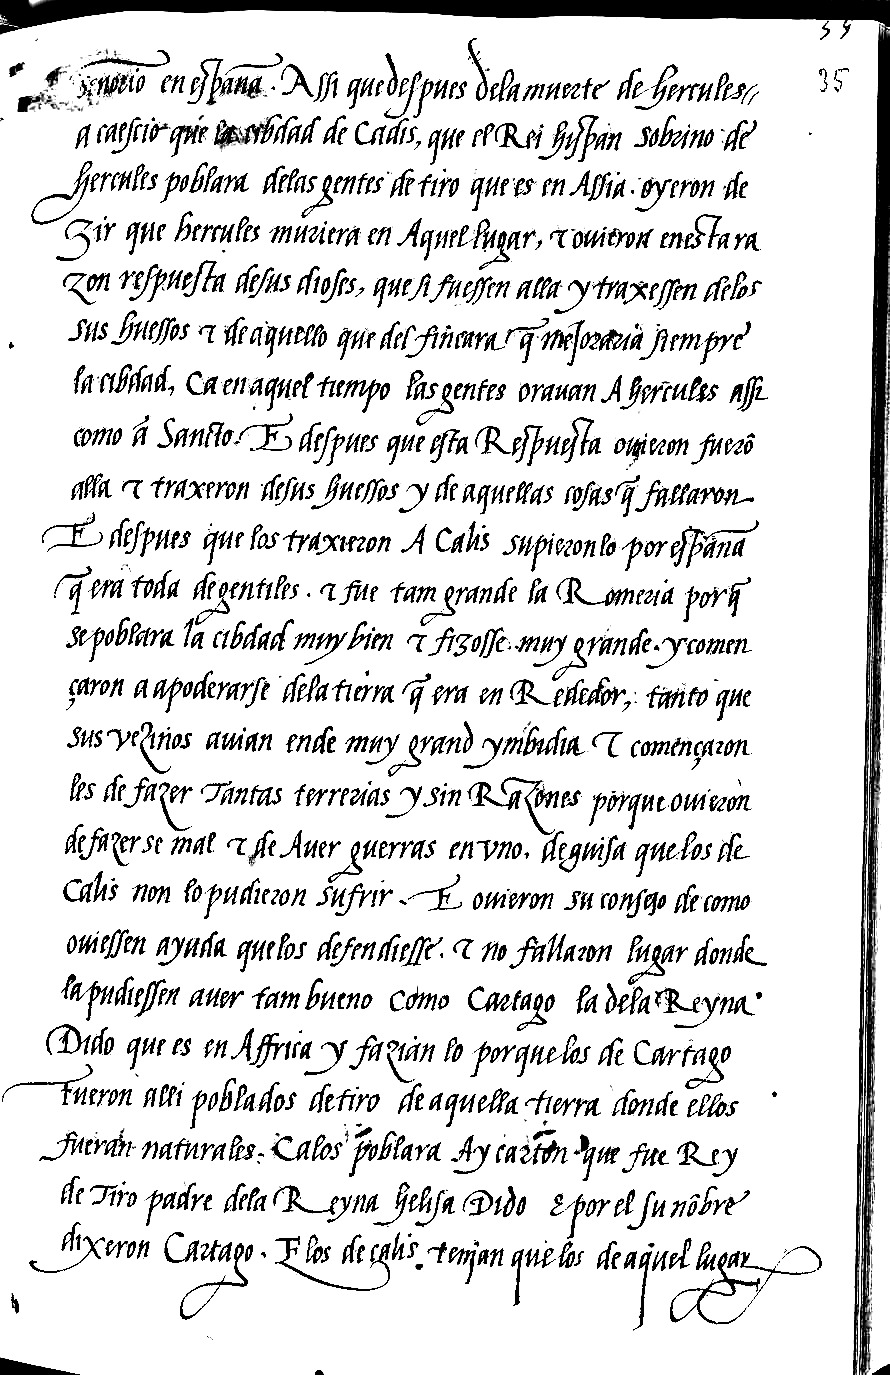 35
35
señorio en esp̃ana. Assi que despues dela muerte de hercules
acaescio que la cibdad de Cadis, que el Rei hispan sobrino de
hercules poblara delas gentes de tiro que es en Assia. oyeron de
zir que hercules muriera en Aquel lugar, τ ouieron en esta ra
zon respuesta de sus dioses, que si fuessen alla y traxessen delos
sus huessos τ de aquello que del fincara q̃ mejoraria siempre
la cibdad, Ca en aquel tiempo las gentes orauan A hercules assi
como a Sancto. E despues que esta Respuesta ouieron fuerõ
alla τ traxeron de sus huessos y de aquellas cosas q̃ fallaron
E despues que los traxieron A Calis supieronlo por esp̃ana
q̃ era toda de gentiles. τ fue tam grande la Romeria porq̃
se poblara la cibdad muy bien τ fizosse muy grande. y comen
çaron a apoderarse dela tierra q̃ era en Rededor, tanto que
sus vezinos auian ende muy grand ymbidia τ començaron
les de fazer Tantas terrerias y sin Razones porque ouieron
de fazerse mal τ de Auer guerras en vno. de guisa que los de
Calis non lo pudieron sufrir. E ouieron su consejo de como
ouiessen ayuda que los defendiesse. τ no fallaron lugar donde
la pudiessen auer tam bueno como Cartago la dela Reyna
Dido que es en Affrica y fazian lo porque los de Cartago
fueron alli poblados de tiro de aquella tierra donde ellos
fueran naturales. Ca los poblara Ay carton que fue Rey
de Tiro padre dela Reyna helisa Dido τ por el su nõbre
dixeron Cartago. E los de calis tenjan que los de aquel lugar